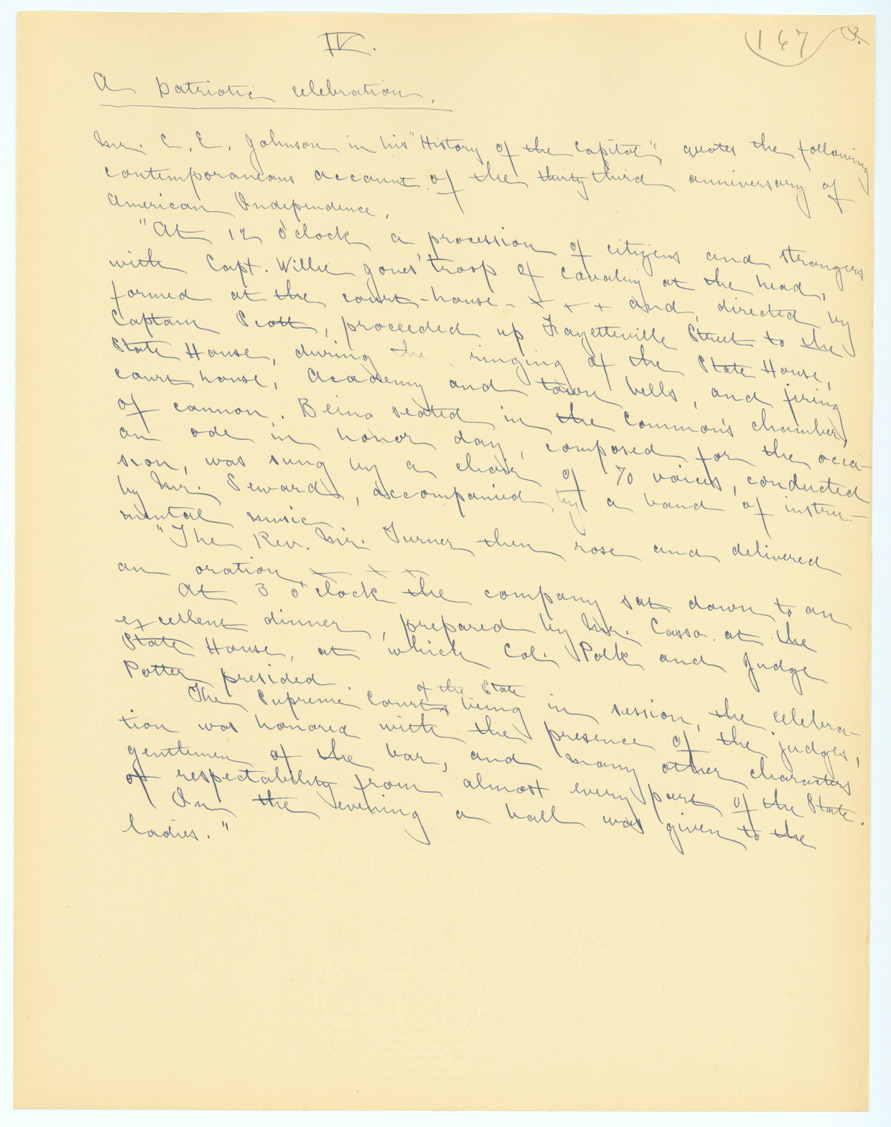 IV.
167
A patriotic celebration.
Mr. C. E. Johnson in his "History of the Capitol", quotes the following
contemporaneous account of the thirty third anniversary of
American Independence.
"At 12 o'clock a procession of citizens and strangers
with Capt. Willie Jones' troop of cavalry at the head,
formed at the court-house - x x x and, directed by
Captain Scott, proceeded up Fayetteville Street to the
State House, during the ringing of the State House,
court house, Academy and town bells, and firing
of cannon. Being seated in the Common's chamber,
an ode in honor day, composed for the occa-
sion, was sung by a choir of 70 voices, conducted
by Mr. Seward, accompanied by a band of instru-
mental music.
"The Rev. Mr. Turner then rose and delivered
an oration x x x
At 3 o'clock the company sat down to an
excellent dinner, prepared by Mr. Casso at the
State House, at which Col. Polk and Judge
Potter presided.
of the State
The Supreme Court being in session, the celebra-
tion was honored with the presence of the judges,
gentlemen of the bar, and many other characters
of respectability from almost every part of the State.
In the evening a ball was given to the
ladies."